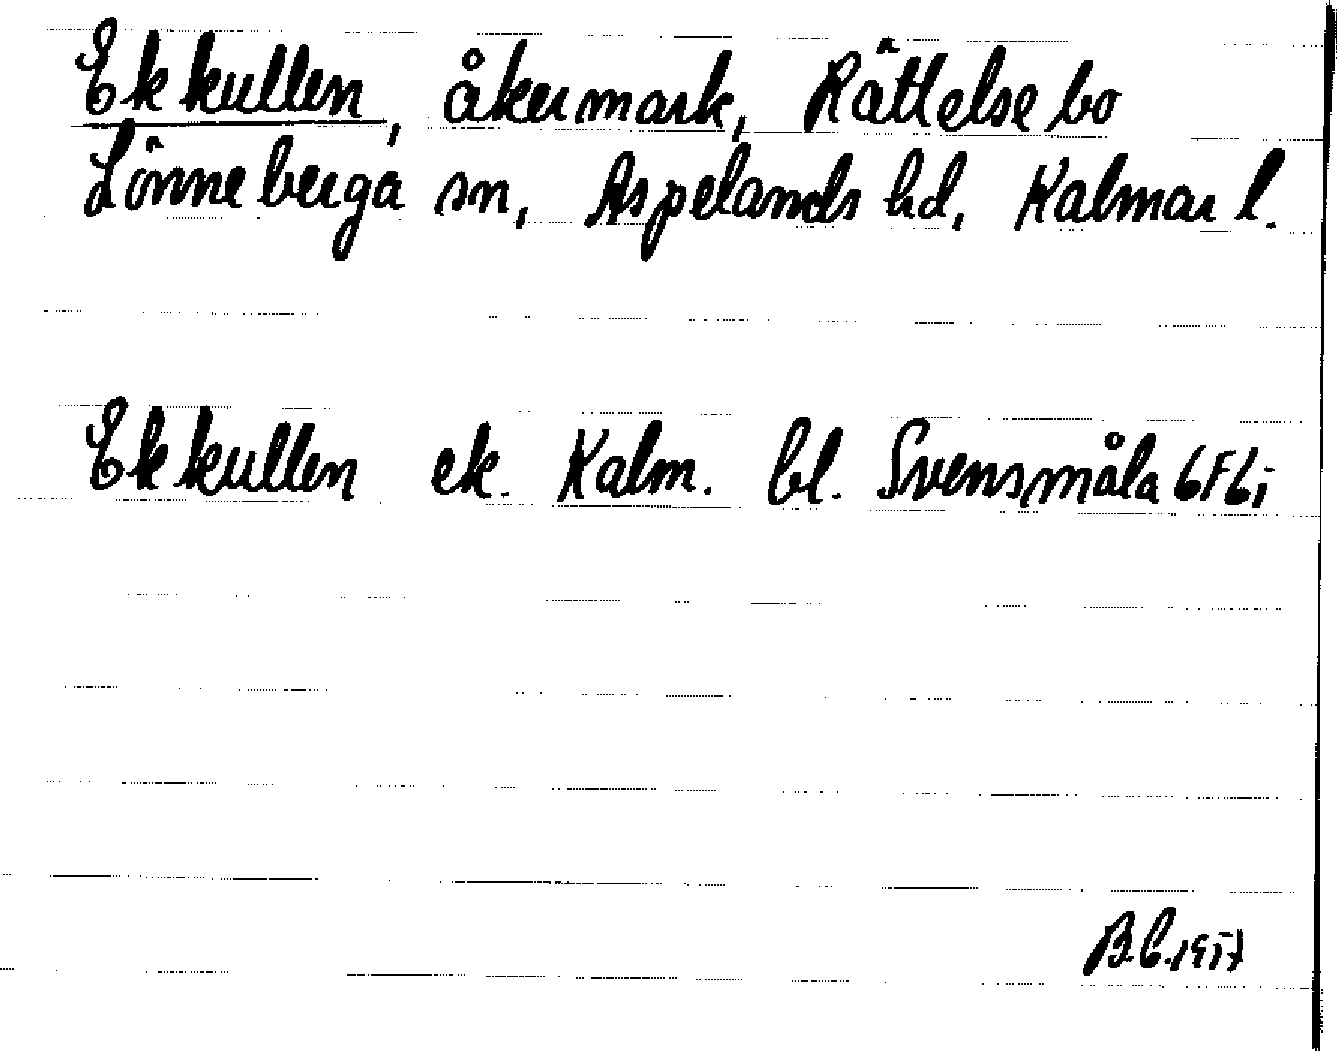 Ekkullen, åkermark, Rättelsebo
Lönneberga sn, Aspelands hd, Kalmar l.
Ekkullen ek. Kalm. bl. Svensmåla 6F6i
B.C. 1957